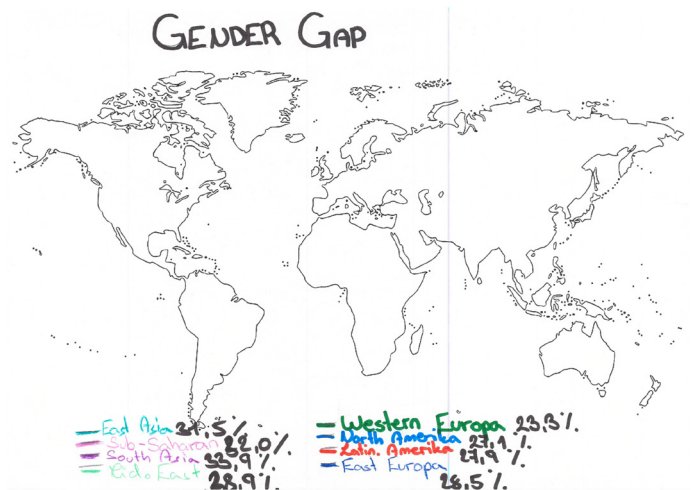 GENDER GAP
East Asia 31,5%
Sub-Saharan 32,0%
South Asia 33,9%
East 38,9%
Western Europa 23,3%
North Amerika 27,1%
Latin. Amerika 27,9%
East Europa 28,5%